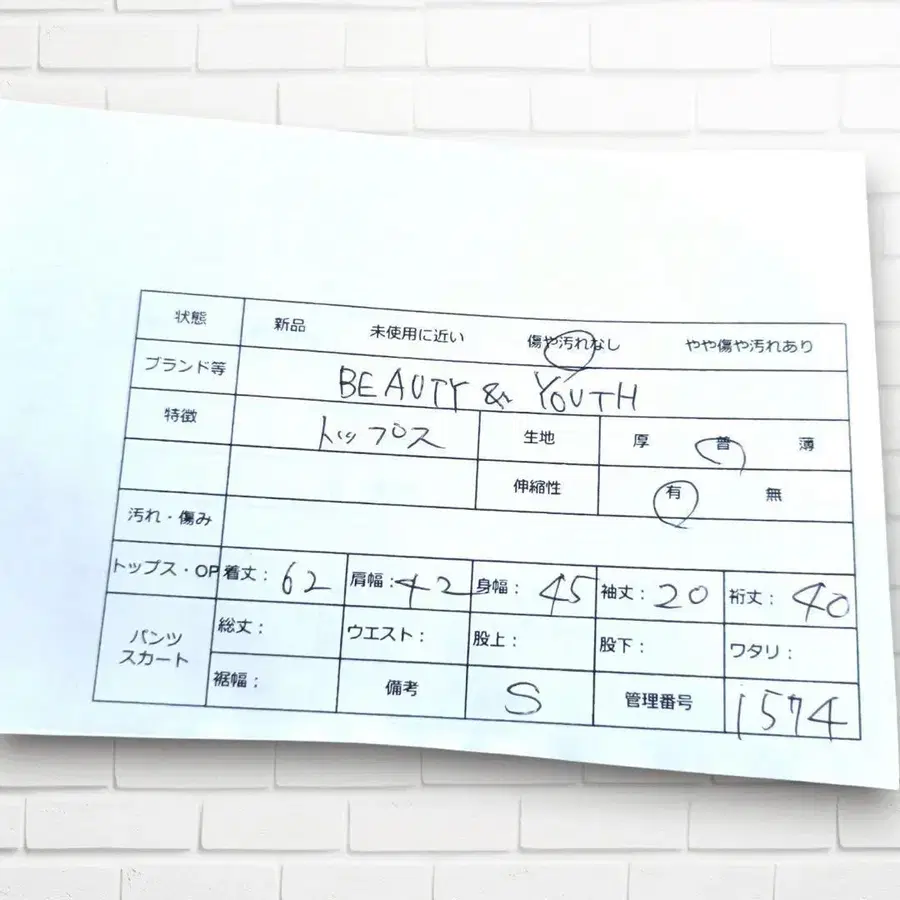 状態 新品 未使用に近い 傷や汚れなし やや傷や汚れあり
ブランド等 BEAUTY & YOUTH
特徴 トップス 生地 厚 普 薄
伸縮性 有 無
汚れ・傷み
トップス・OP 着丈: 62 肩幅: 42 身幅: 45 袖丈: 20 裄丈: 40
パンツ
スカート
総丈: ウエスト: 股上: 股下: ワタリ:
裾幅: 備考 S 管理番号 1574